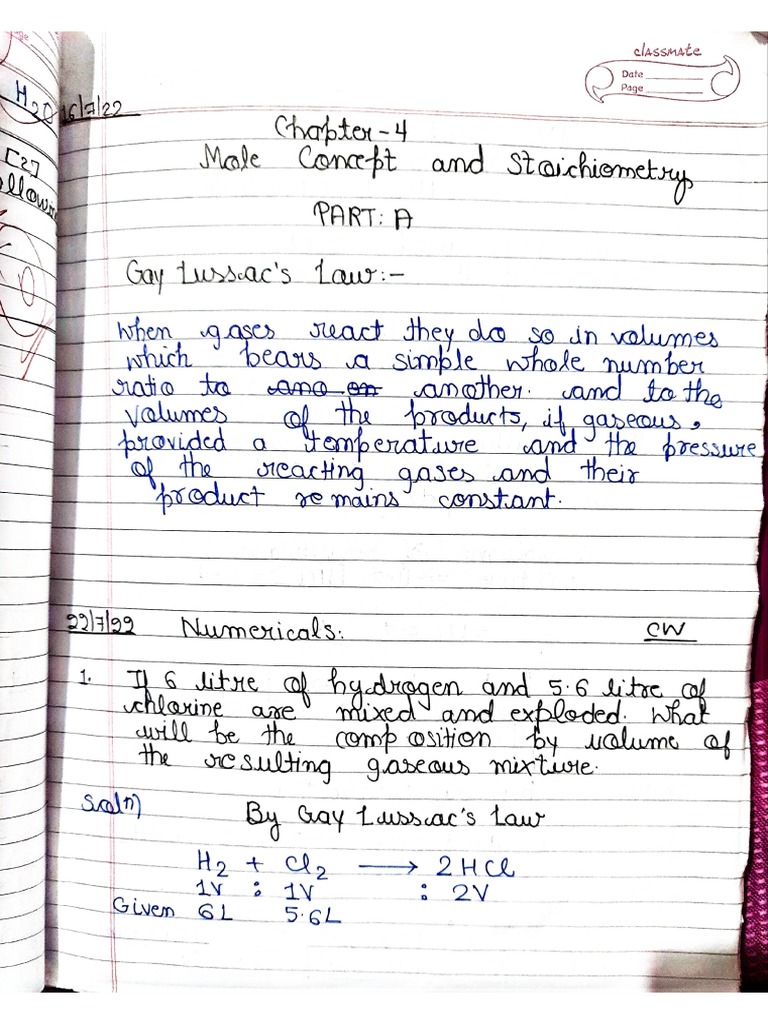 classmate
Date
Page
H2O
16/7/22
Chapter-4
Mole Concept and Stoichiometry
[2]
PART: A
Gay Lussac's Law:-
When gases react they do so in volumes
which bears a simple whole number
ratio to another. and to the
volumes of the products, if gaseous,
provided a temperature and the pressure
of the reacting gases and their
product remains constant.
22/7/22 Numericals: CW
1. If 6 litre of hydrogen and 5.6 litre of
chlorine are mixed and exploded. What
will be the composition by volume of
the resulting gaseous mixture.
Sol(n) By Gay Lussac's Law
H2 + Cl2 → 2HCl
1V : 1V : 2V
Given 6L 5.6L